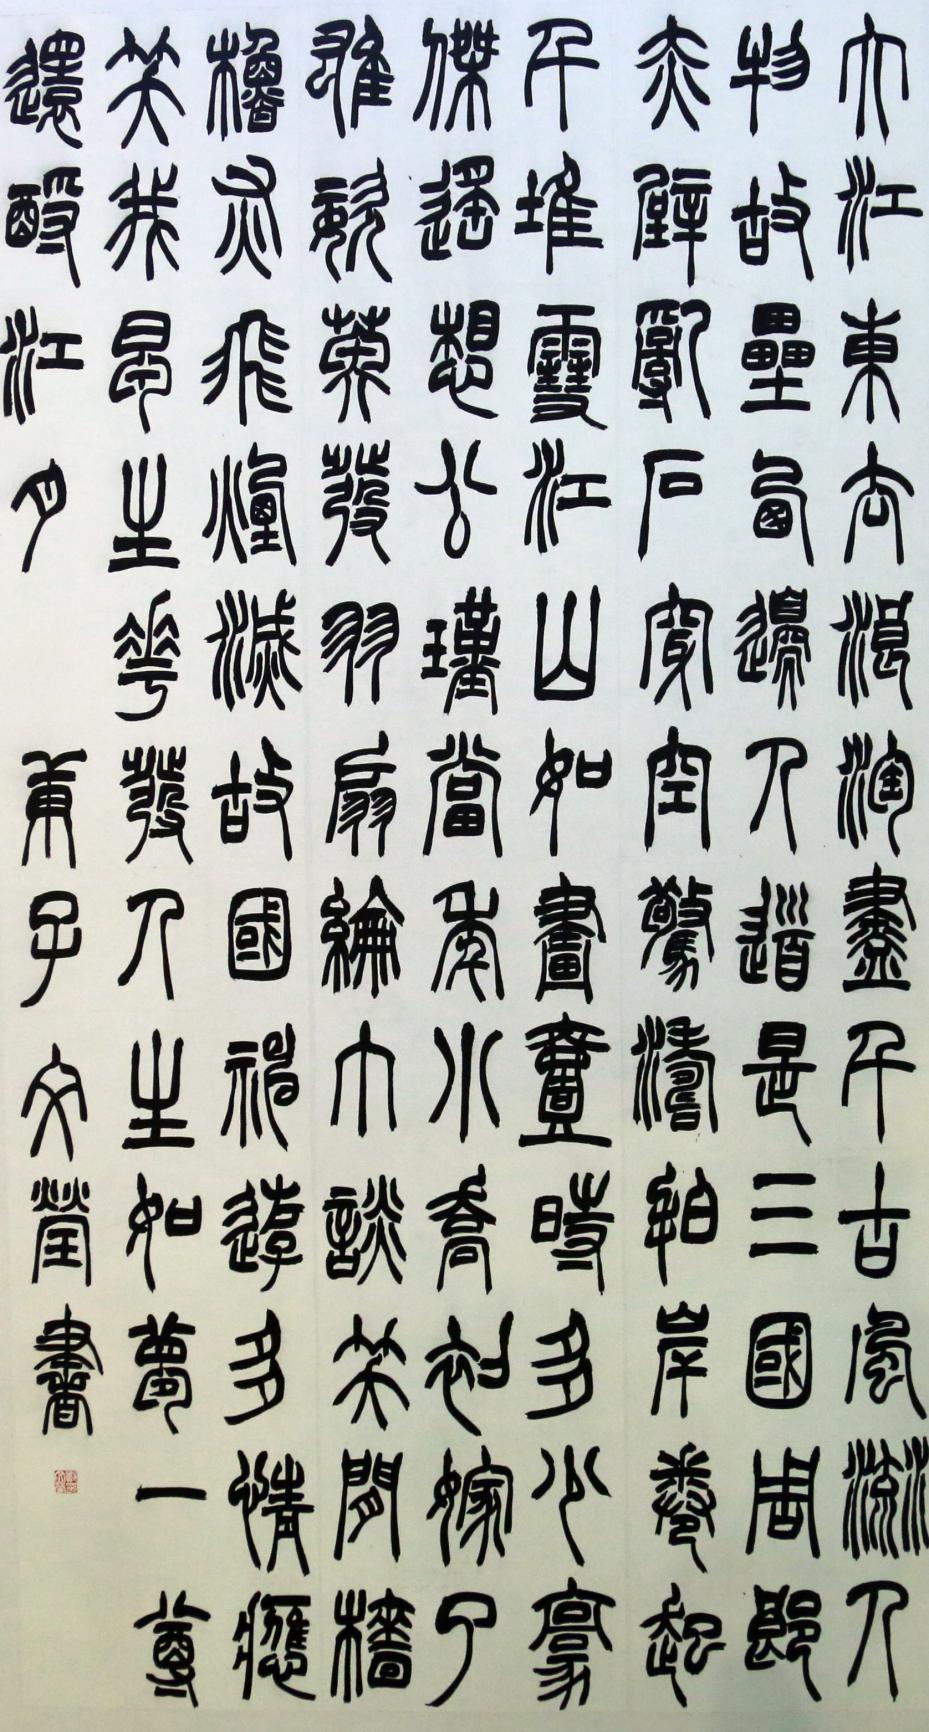 大江東去浪淘盡千古風流人
物故壘西邊人道是三國周郎
赤壁亂石穿空驚濤拍岸卷起
千堆雪江山如畫壹時多少豪
傑遙想公瑾當年小喬初嫁了
雄姿英發羽扇綸巾談笑間檣
櫓灰飛煙滅故國神遊多情應
笑我早生華發人生如夢一尊
還酹江月 庚子文瑩書